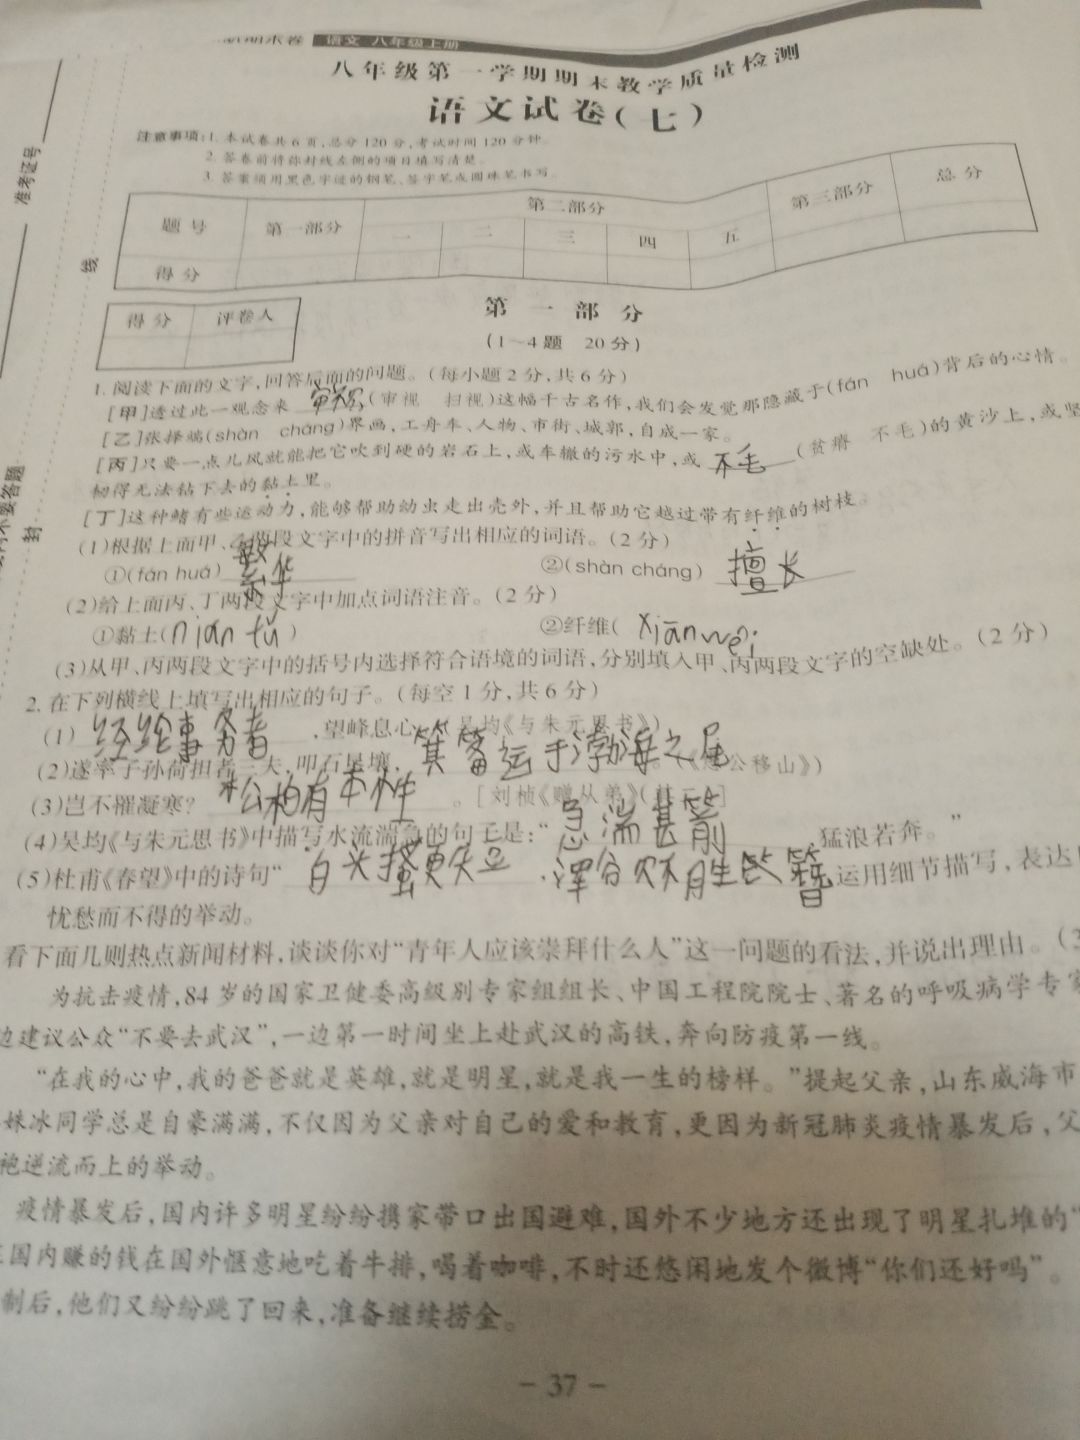 语文 八年级上册
八年级第一学期期末教学质量检测
语文试卷(七)
注意事项:1. 本试卷共6页,总分120分,考试时间120分钟。
2. 答卷前将密封线左侧的项目填写清楚。
3. 答案须用黑色字迹的钢笔、签字笔或圆珠笔书写。
准考证号
线
封
题号 第一部分 第二部分 第三部分 总分
一 二 三 四 五
得分
得分 评卷人
第一部分
(1~4题 20分)
1. 阅读下面的文字,回答后面的问题。(每小题2分,共6分)
[甲]透过此一观念来 审视 (审视 扫视)这幅千古名作,我们会发觉那隐藏于(fán huá)背后的心情。
[乙]张择端(shàn cháng)界画,工舟车、人物、市街、城郭,自成一家。
[丙]只要一点儿风就能把它吹到硬的岩石上,或车辙的污水中,或 不毛 (贫瘠 不毛)的黄沙上,或坚
韧得无法钻下去的黏土里。
[丁]这种鳍有些运动力,能够帮助幼虫走出壳外,并且帮助它越过带有纤维的树枝。
(1)根据上面甲、乙两段文字中的拼音写出相应的词语。(2分)
①(fán huá) 繁华 ②(shàn cháng) 擅长
(2)给上面丙、丁两段文字中加点词语注音。(2分)
①黏土(nián tǔ) ②纤维( xiān wéi
(3)从甲、丙两段文字中的括号内选择符合语境的词语,分别填入甲、丙两段文字的空缺处。(2分)
2. 在下列横线上填写出相应的句子。(每空1分,共6分)
(1) 经纶事务者 ,望峰息心。(吴均《与朱元思书》)
(2)遂率子孙荷担者三夫,叩石垦壤, 箕畚运于渤海之尾 《愚公移山》)
(3)岂不罹凝寒? 松柏有本性 。[刘桢《赠从弟》(其二)]
(4)吴均《与朱元思书》中描写水流湍急的句子是:“ 急湍甚箭 猛浪若奔。”
(5)杜甫《春望》中的诗句“ 白头搔更短 浑欲不胜簪 运用细节描写,表达
忧愁而不得的举动。
看下面几则热点新闻材料,谈谈你对“青年人应该崇拜什么人”这一问题的看法,并说出理由。(
为抗击疫情,84岁的国家卫健委高级别专家组组长、中国工程院院士、著名的呼吸病学专家
边建议公众“不要去武汉”,一边第一时间坐上赴武汉的高铁,奔向防疫第一线。
“在我的心中,我的爸爸就是英雄,就是明星,就是我一生的榜样。”提起父亲,山东威海市
姝冰同学总是自豪满满,不仅因为父亲对自己的爱和教育,更因为新冠肺炎疫情暴发后,父
袍逆流而上的举动。
疫情暴发后,国内许多明星纷纷携家带口出国避难,国外不少地方还出现了明星扎堆的“
国内赚的钱在国外惬意地吃着牛排,喝着咖啡,不时还悠闲地发个微博“你们还好吗”。
制后,他们又纷纷跳了回来,准备继续捞金。
- 37 -